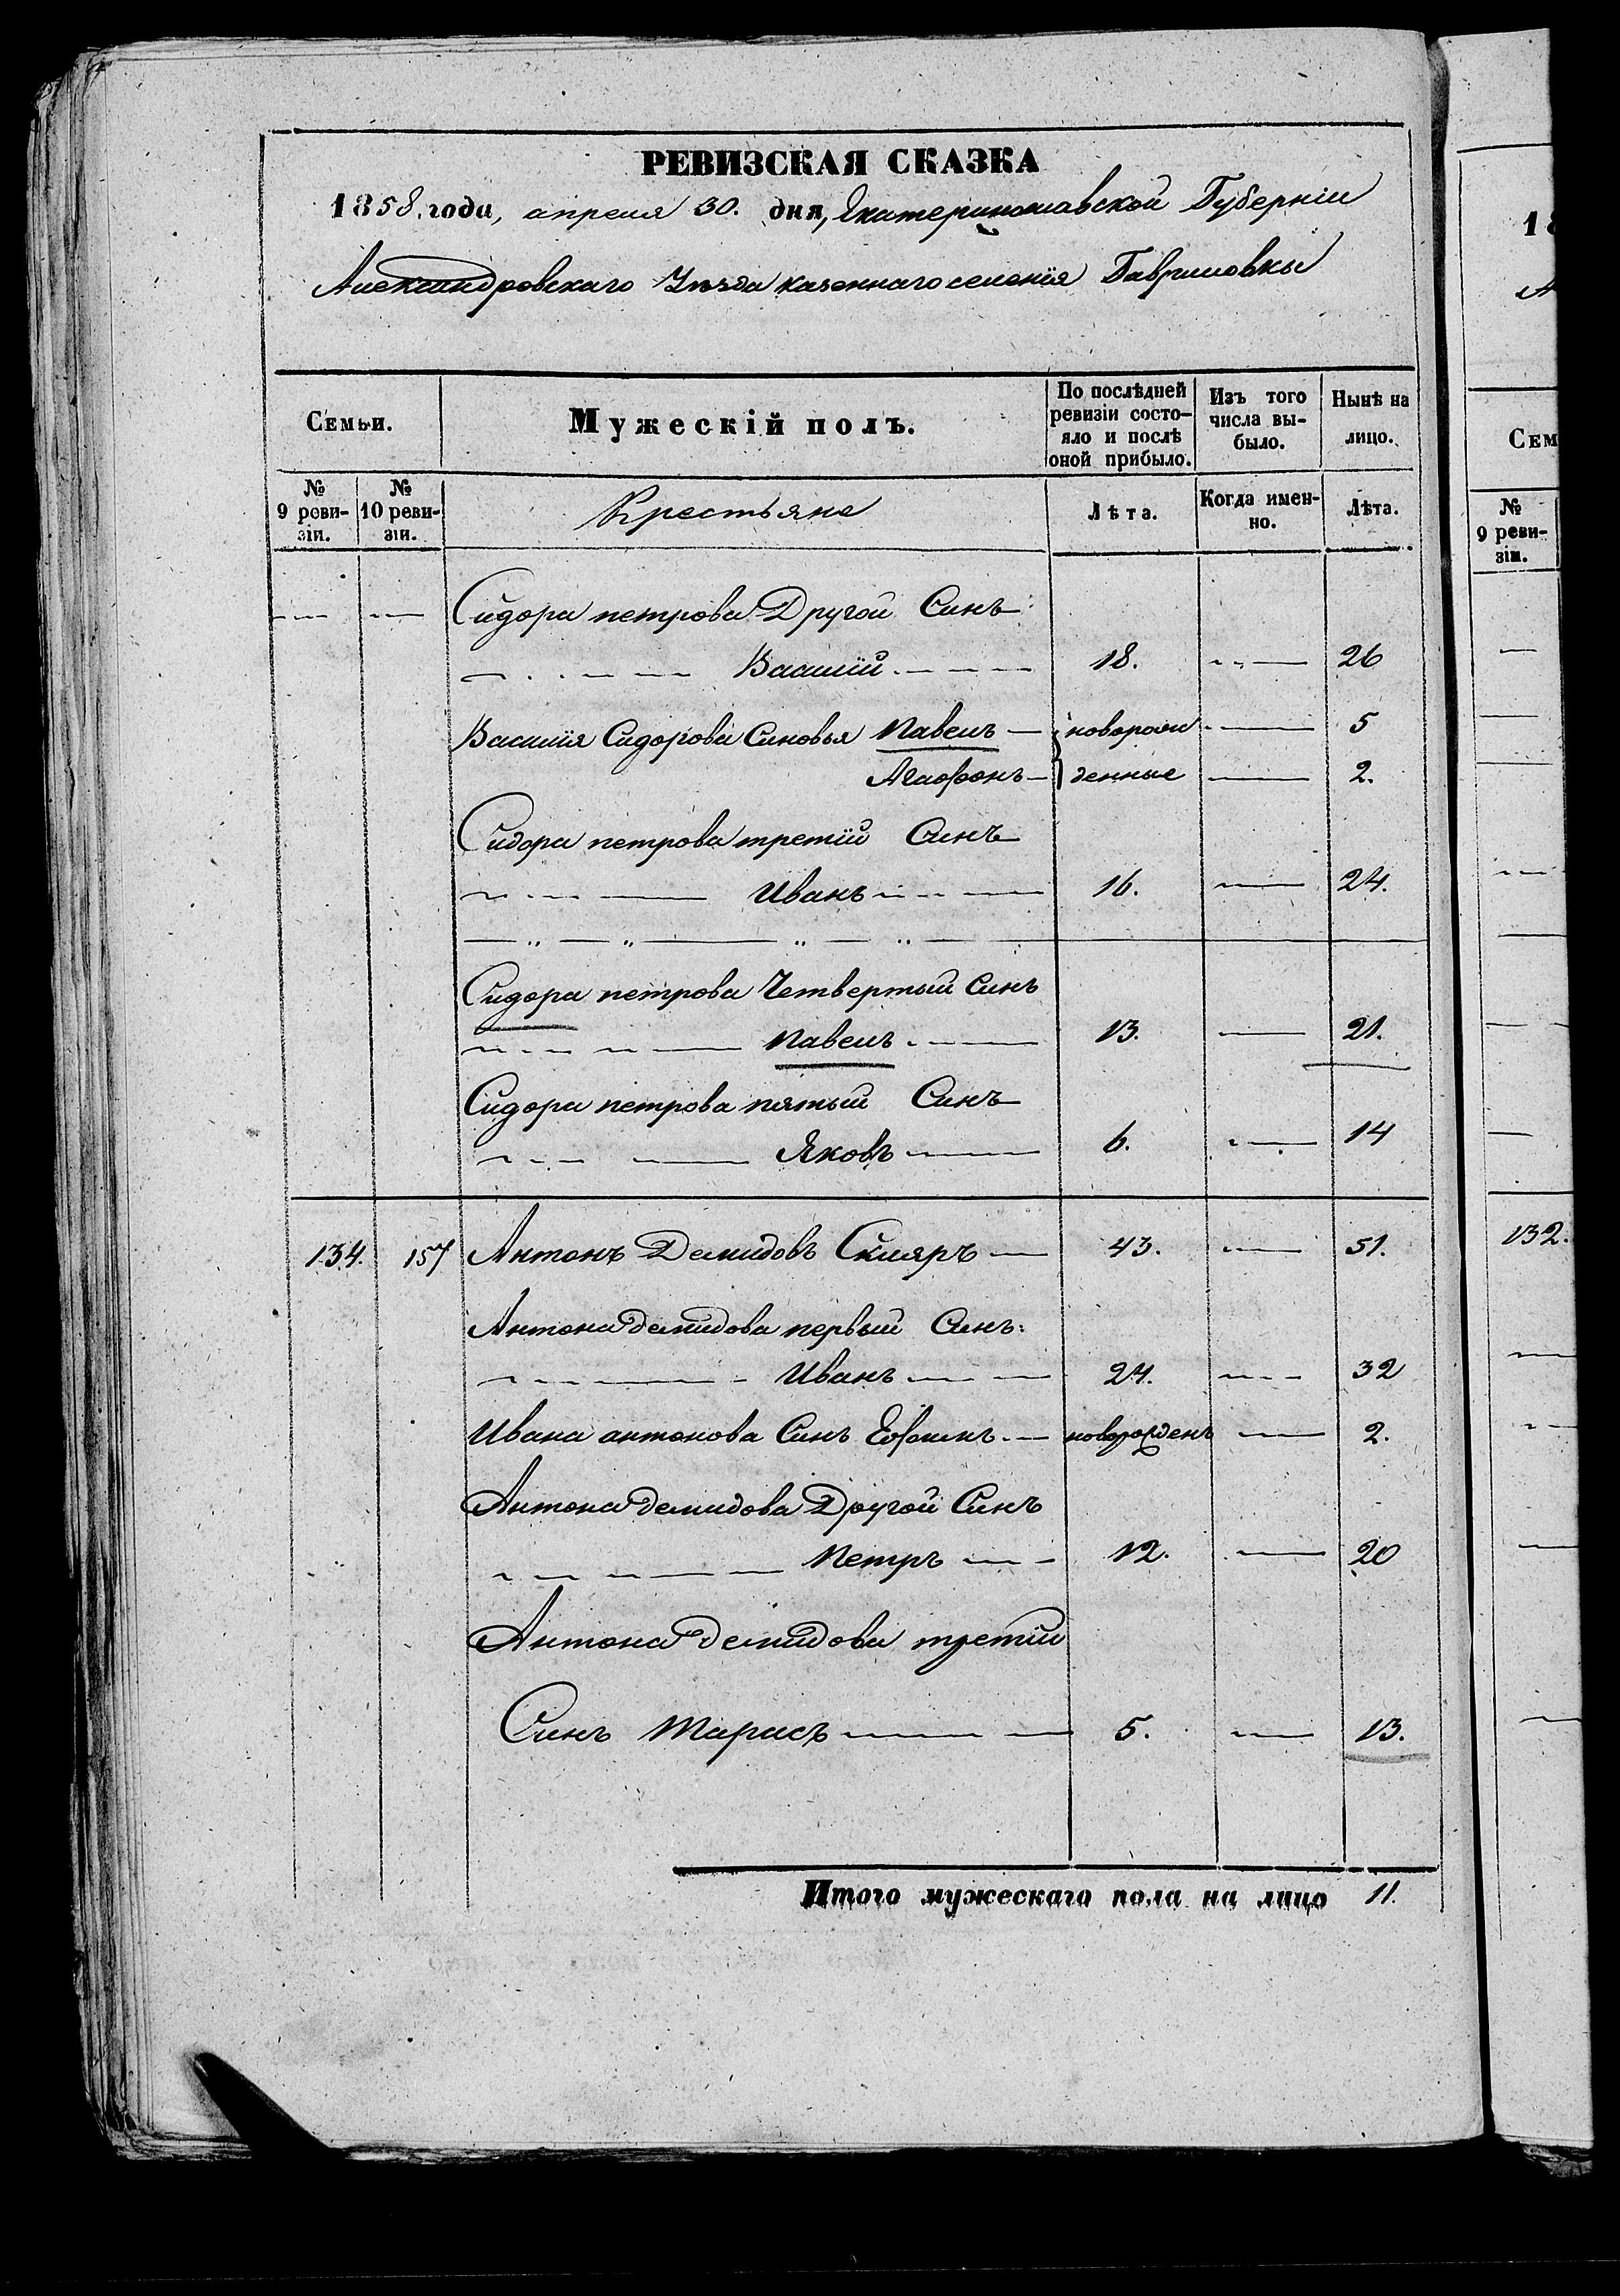 РЕВИЗСКАЯ СКАЗКА
1858 года, апреля 30. дня, Екатеринославской Губерніи
Александровскаго Уѣзда казеннаго селенія Гавриловки
Семьи.
Мужескій полъ.
По послѣдней ревизіи состо-
яло и послѣ
оной прибыло.
Изъ того
числа вы-
было.
Нынѣ на
лицо.
№
9 реви-
зіи.
№
10 реви-
зіи.
Крестьяне
Лѣта.
Когда имен-
но.
Лѣта.
Сидора петрова Другой Синъ:
Василій 18. 26
Василія Сидорова Синовья Павелъ новорож 5
Агафонъ денные 2.
Сидора петрова третій Синъ
Иванъ 16. 24.
Сидора петрова Четвертый Синъ
Павелъ 13. 21.
Сидора петрова пятый Синъ
Яковъ 6. 14
134. 157 Антонъ Демидовъ Скляръ 43. 51.
Антона демидова первый Синъ:
Иванъ 24. 32
Ивана антонова Синъ Ефимъ новорожденъ 2.
Антона демидова Другой Синъ
Петръ 12. 20
Антона демидова третій
Синъ Тарасъ 5. 13.
Итого мужескаго пола на лицо 11.
18
А
Сем
№
9 реви-
зіи.
132.